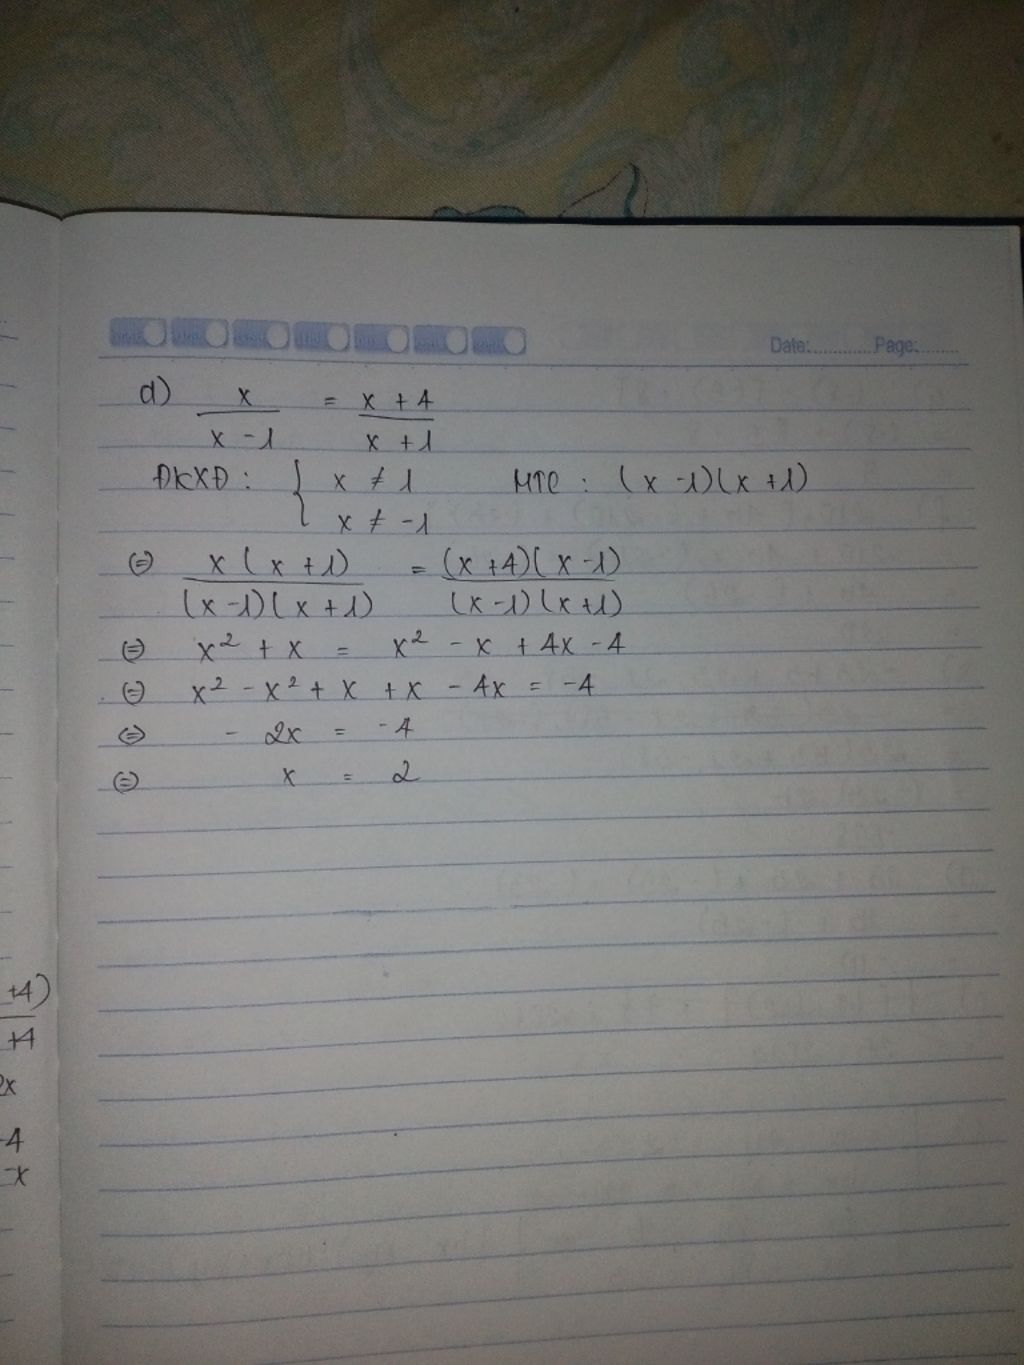 Date:............Page:........
d) x/(x - 1) = (x + 4)/(x + 1)
ĐKXĐ : { x ≠ 1 MTC : (x -1)(x +1)
x ≠ -1
(=) x ( x + 1)/((x -1)( x + 1)) = (x +4)( x -1)/((x -1)(x +1))
(=) x² + x = x² - x + 4x - 4
(=) x² - x² + x + x - 4x = -4
(=) - 2x = -4
(=) x = 2
+4)
+4
2x
-4
-x